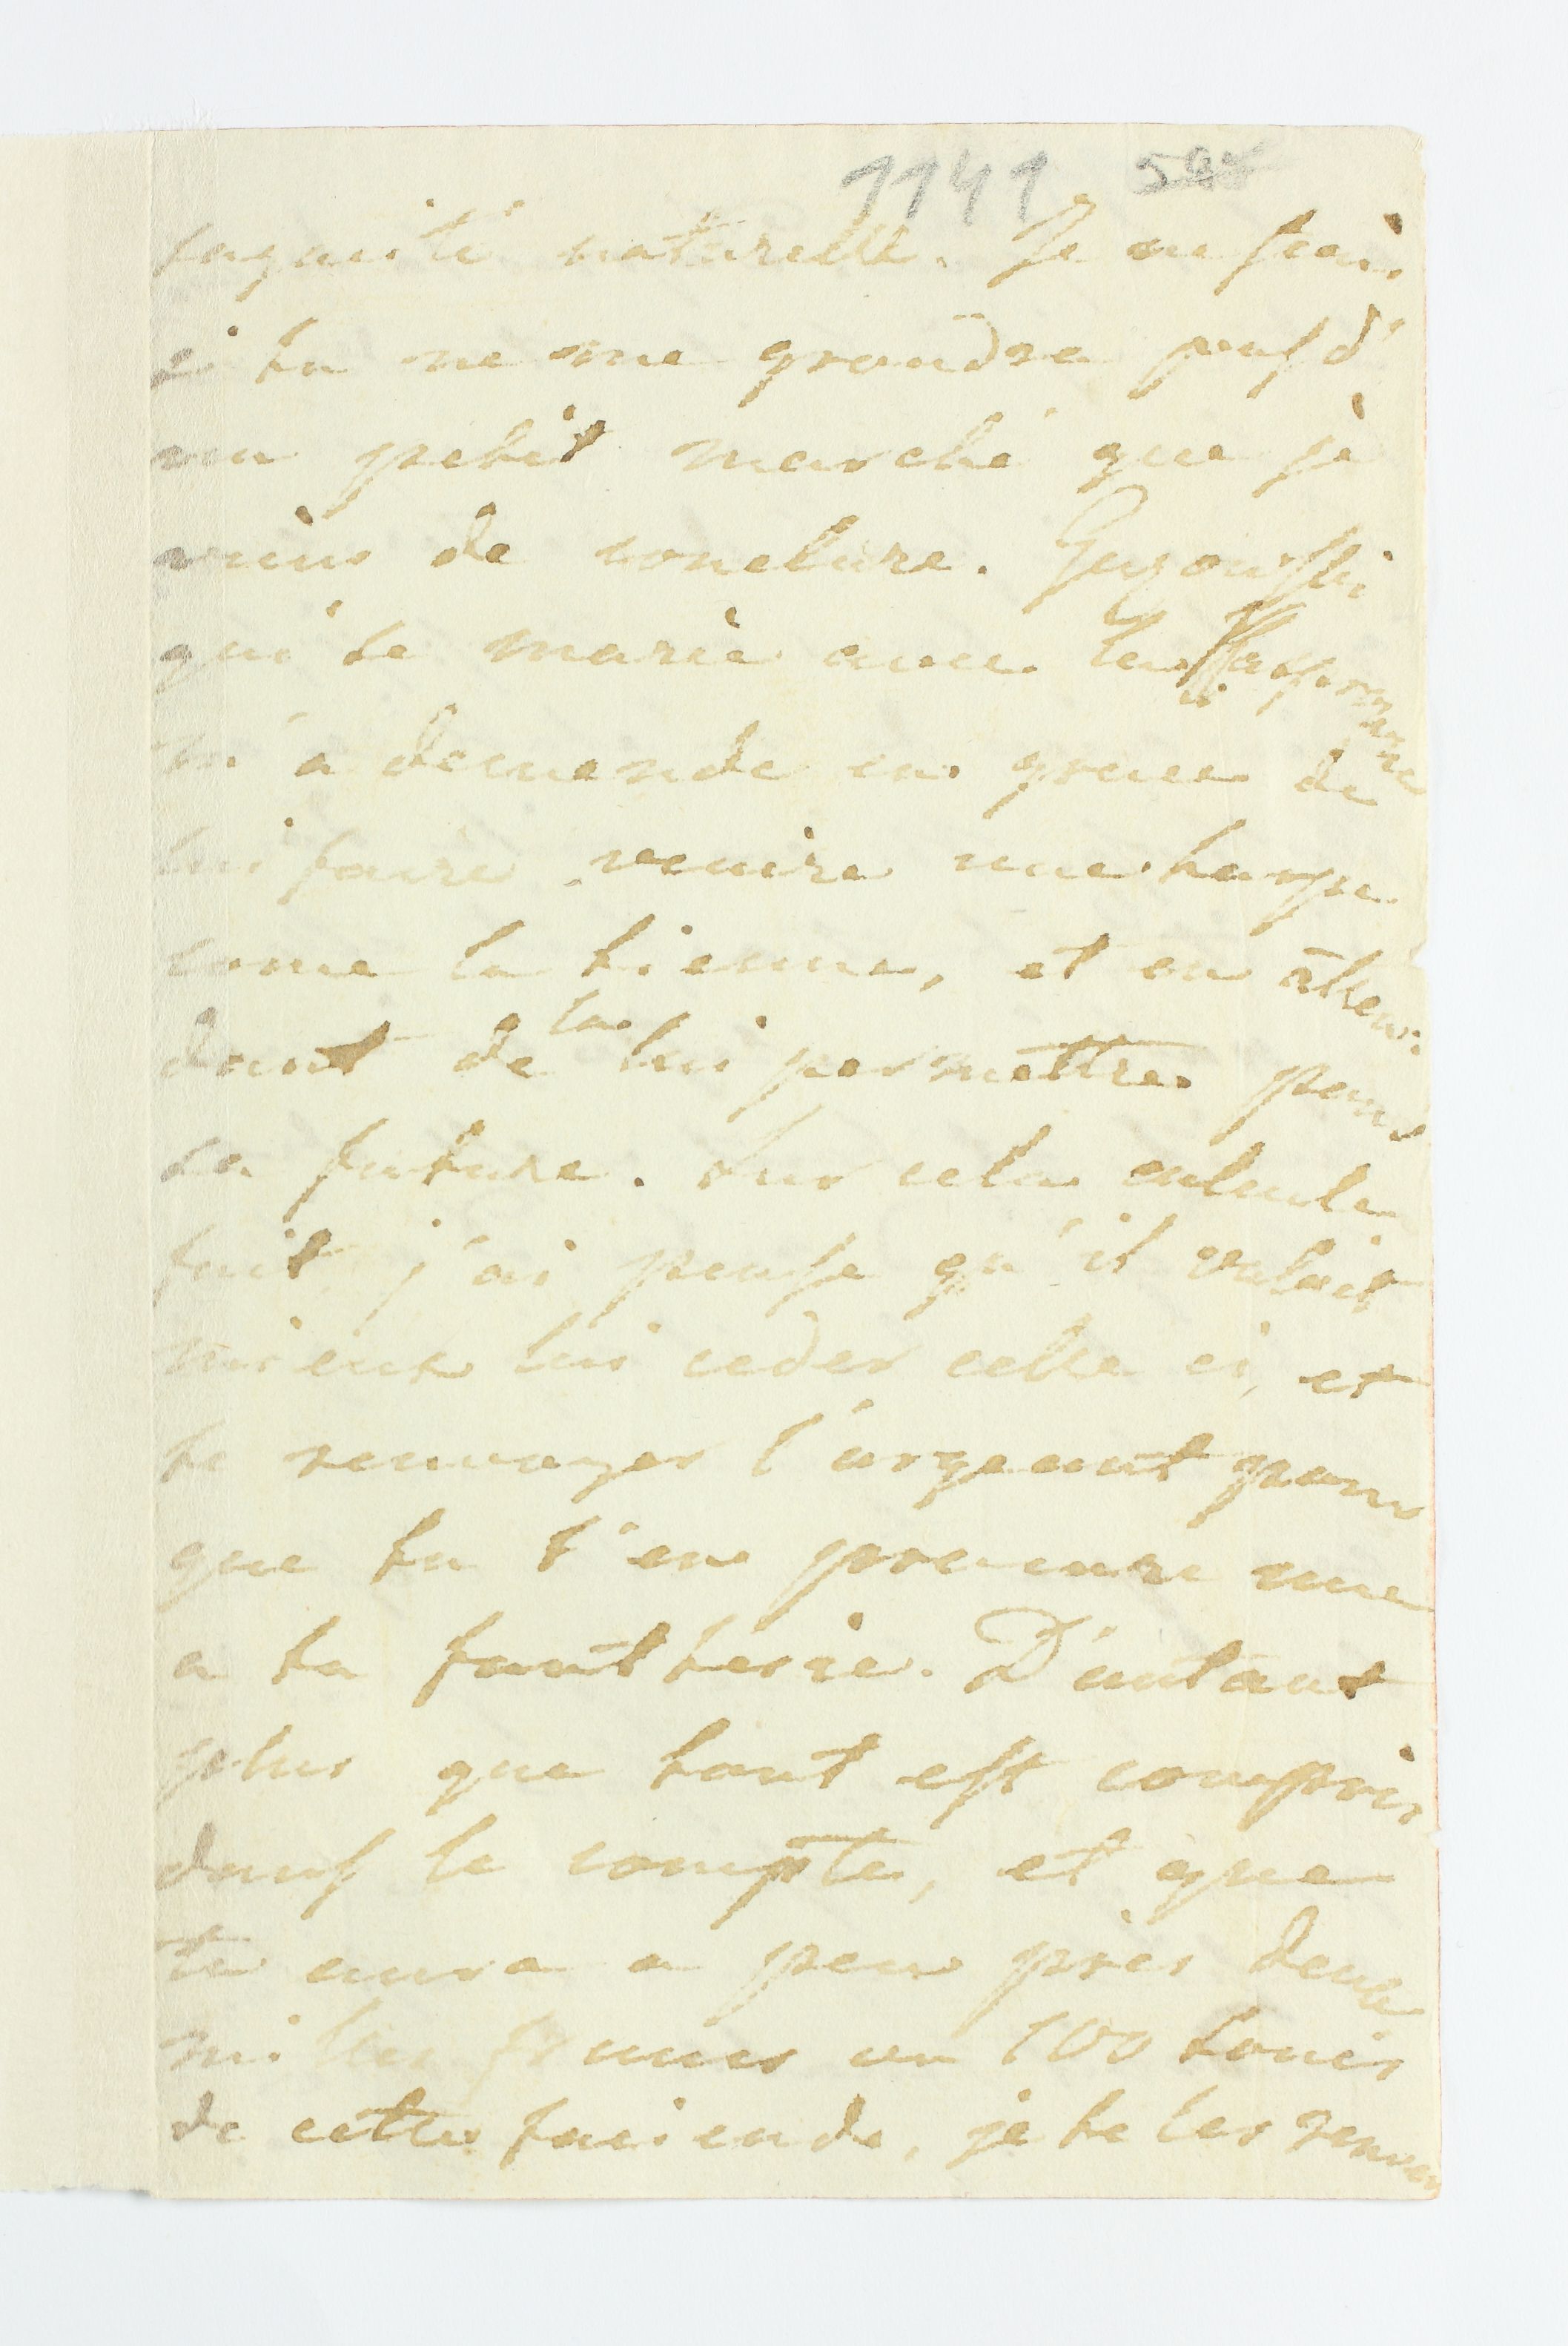 1141
naturelle. Je ne scais
si tu ne me grondra pas d'
un petit marché que je
viens de conclure.
qui se marie avec la
m'a demende en grace de
lui faire venire une harpe
come la tienne, et en atten:
dant de la lui permettre pour
sa future. Sur cela calcule
fait, j'ai pensé qu'il valait
mieux lui ceder celle ci, et
te renvoyer l'argeant pour
que tu t'en procure une
a ta fanthesie. D'autant
plus que tout est compris
dans le compte, et que
tu aura a peu près deux
milles francs ou 100 Louis
de cette faciende, je te les